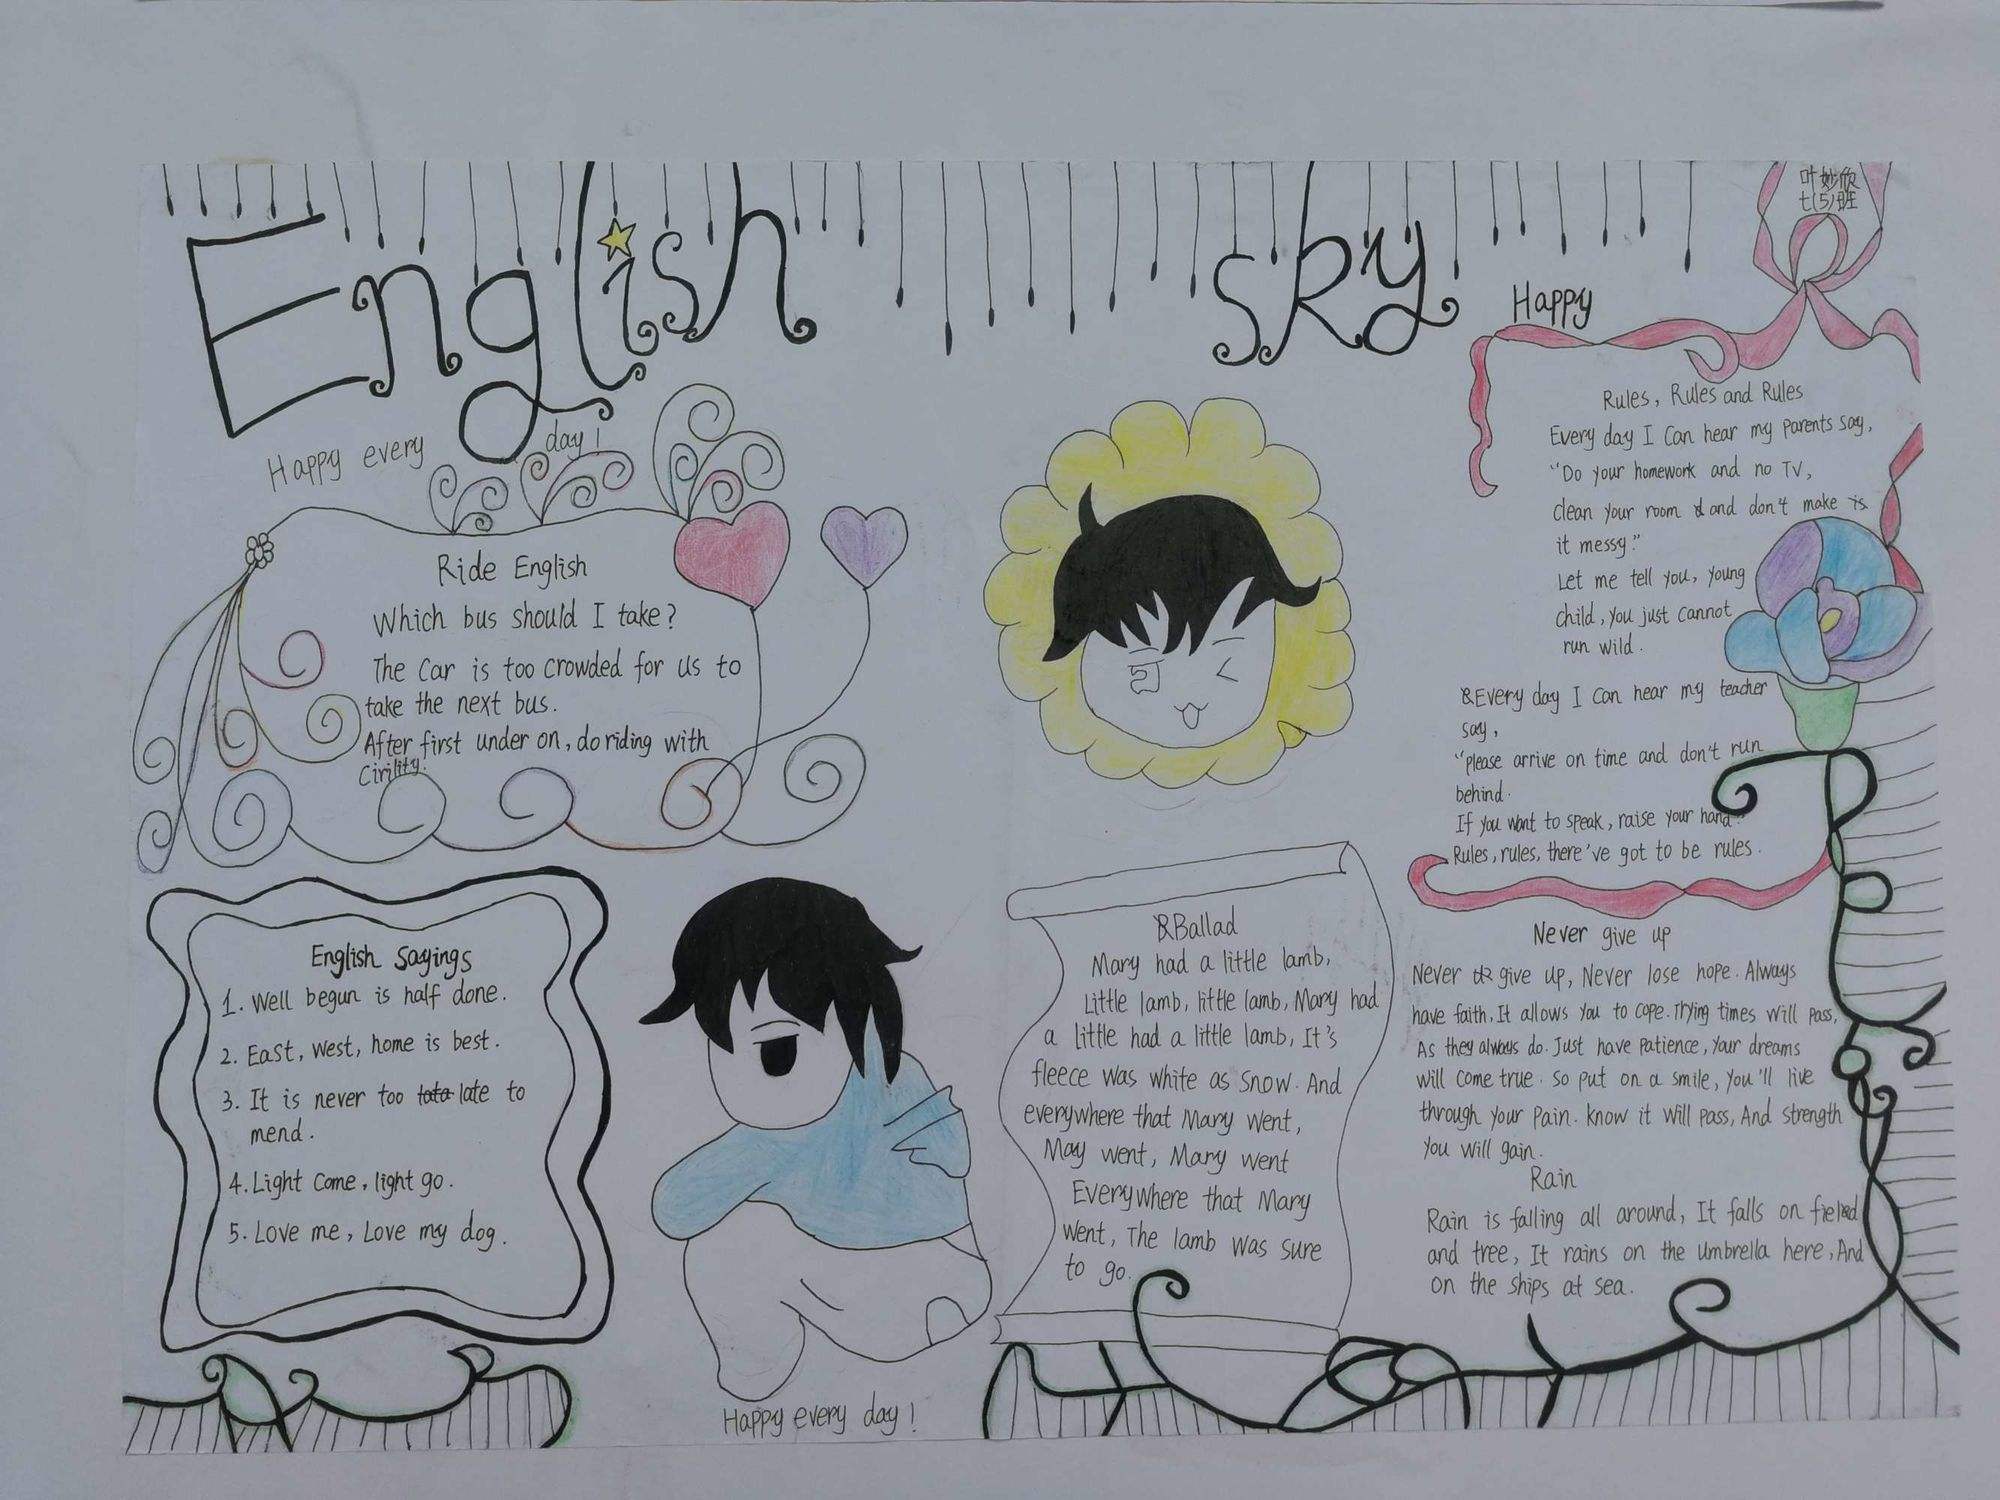 English sky
叶妙欣
七(5)班
Happy
Happy every day!
Ride English
Which bus should I take?
The Car is too crowded for us to
take the next bus.
After first under on, do riding with
Cirility!
English Sayings
1. Well begun is half done.
2. East, west, home is best.
3. It is never too late to
mend.
4. Light come, light go.
5. Love me, Love my dog.
Happy every day!
Ballad
Mary had a little lamb,
Little lamb, little lamb, Mary had
a little had a little lamb, It's
fleece was white as snow. And
everywhere that Mary went,
May went, Mary went
Everywhere that Mary
went, The lamb was sure
to go.
Rules, Rules and Rules
Every day I Can hear my parents say,
"Do your homework and no TV,
clean your room and don't make is
it messy."
Let me tell you, young
child, you just cannot
run wild.
Every day I Can hear my teacher
say,
"please arrive on time and don't run
behind.
If you want to speak, raise your hand."
Rules, rules, there've got to be rules.
Never give up
Never give up, Never lose hope. Always
have faith, It allows you to cope. Trying times will pass,
As they always do. Just have patience, Your dreams
will come true. So put on a smile, You'll live
through your pain. know it will pass, And strength
you will gain.
Rain
Rain is falling all around, It falls on field
and tree, It rains on the umbrella here, And
on the ships at sea.